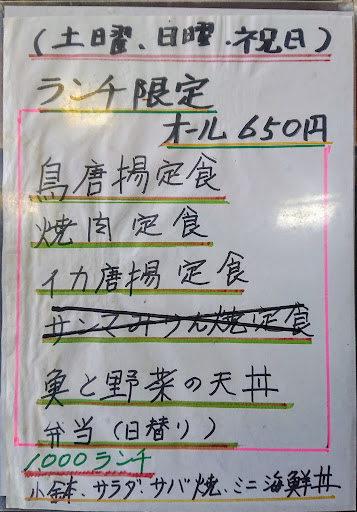 (土曜、日曜、祝日)
ランチ限定
オール650円
鳥唐揚定食
焼肉定食
イカ唐揚定食
サンマみりん焼定食
魚と野菜の天丼
弁当(日替り)
1000ランチ
小鉢、サラダ、サバ焼、ミニ海鮮丼